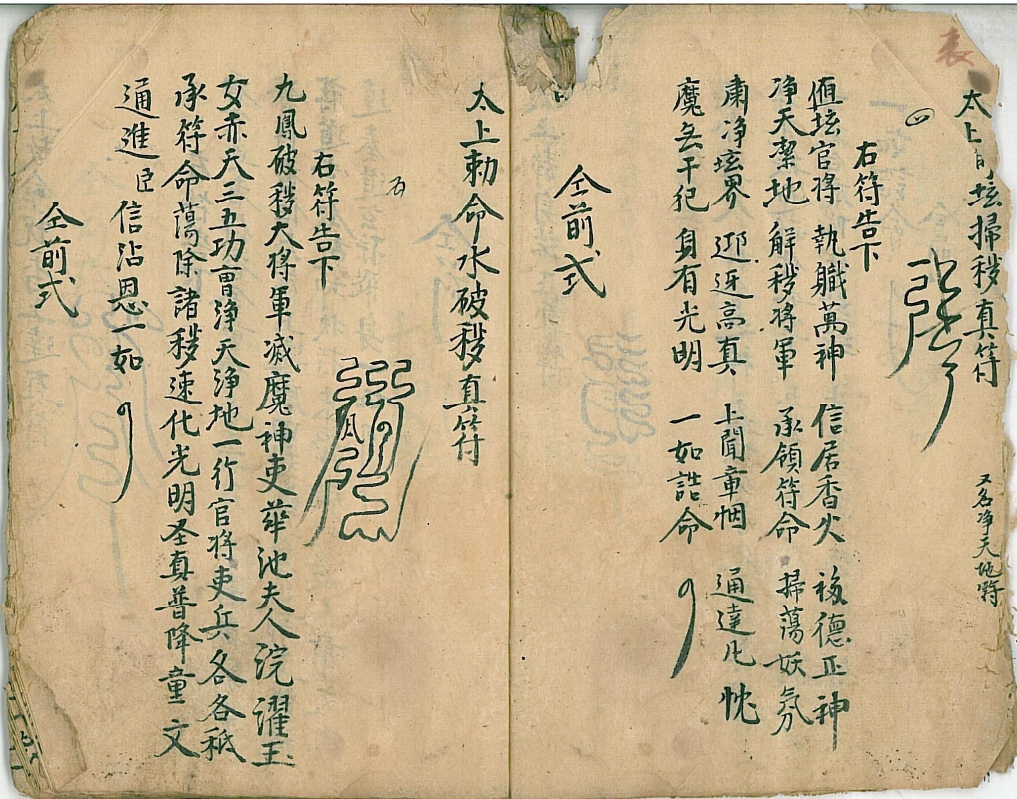 表
太上 壇掃秽真符
又名净天地符
四
右符告下
值坛官将 執職萬神 信居香火 福德正神
净天潔地 解秽将軍 承領符命 掃蕩妖氛
肅净坛界 迎迓高真 上聞章悃 通達凡忱
魔无干犯 身有光明 一如誥命
仝前式
太上勅命水破秽真符
右符告下
九鳳破秽大将軍滅魔神吏華池夫人浣濯玉
女赤天三五功曹淨天淨地一行官将吏兵各各秪
承符命蕩除諸秽速化光明圣真普降童文
通進臣信沾恩一如
仝前式